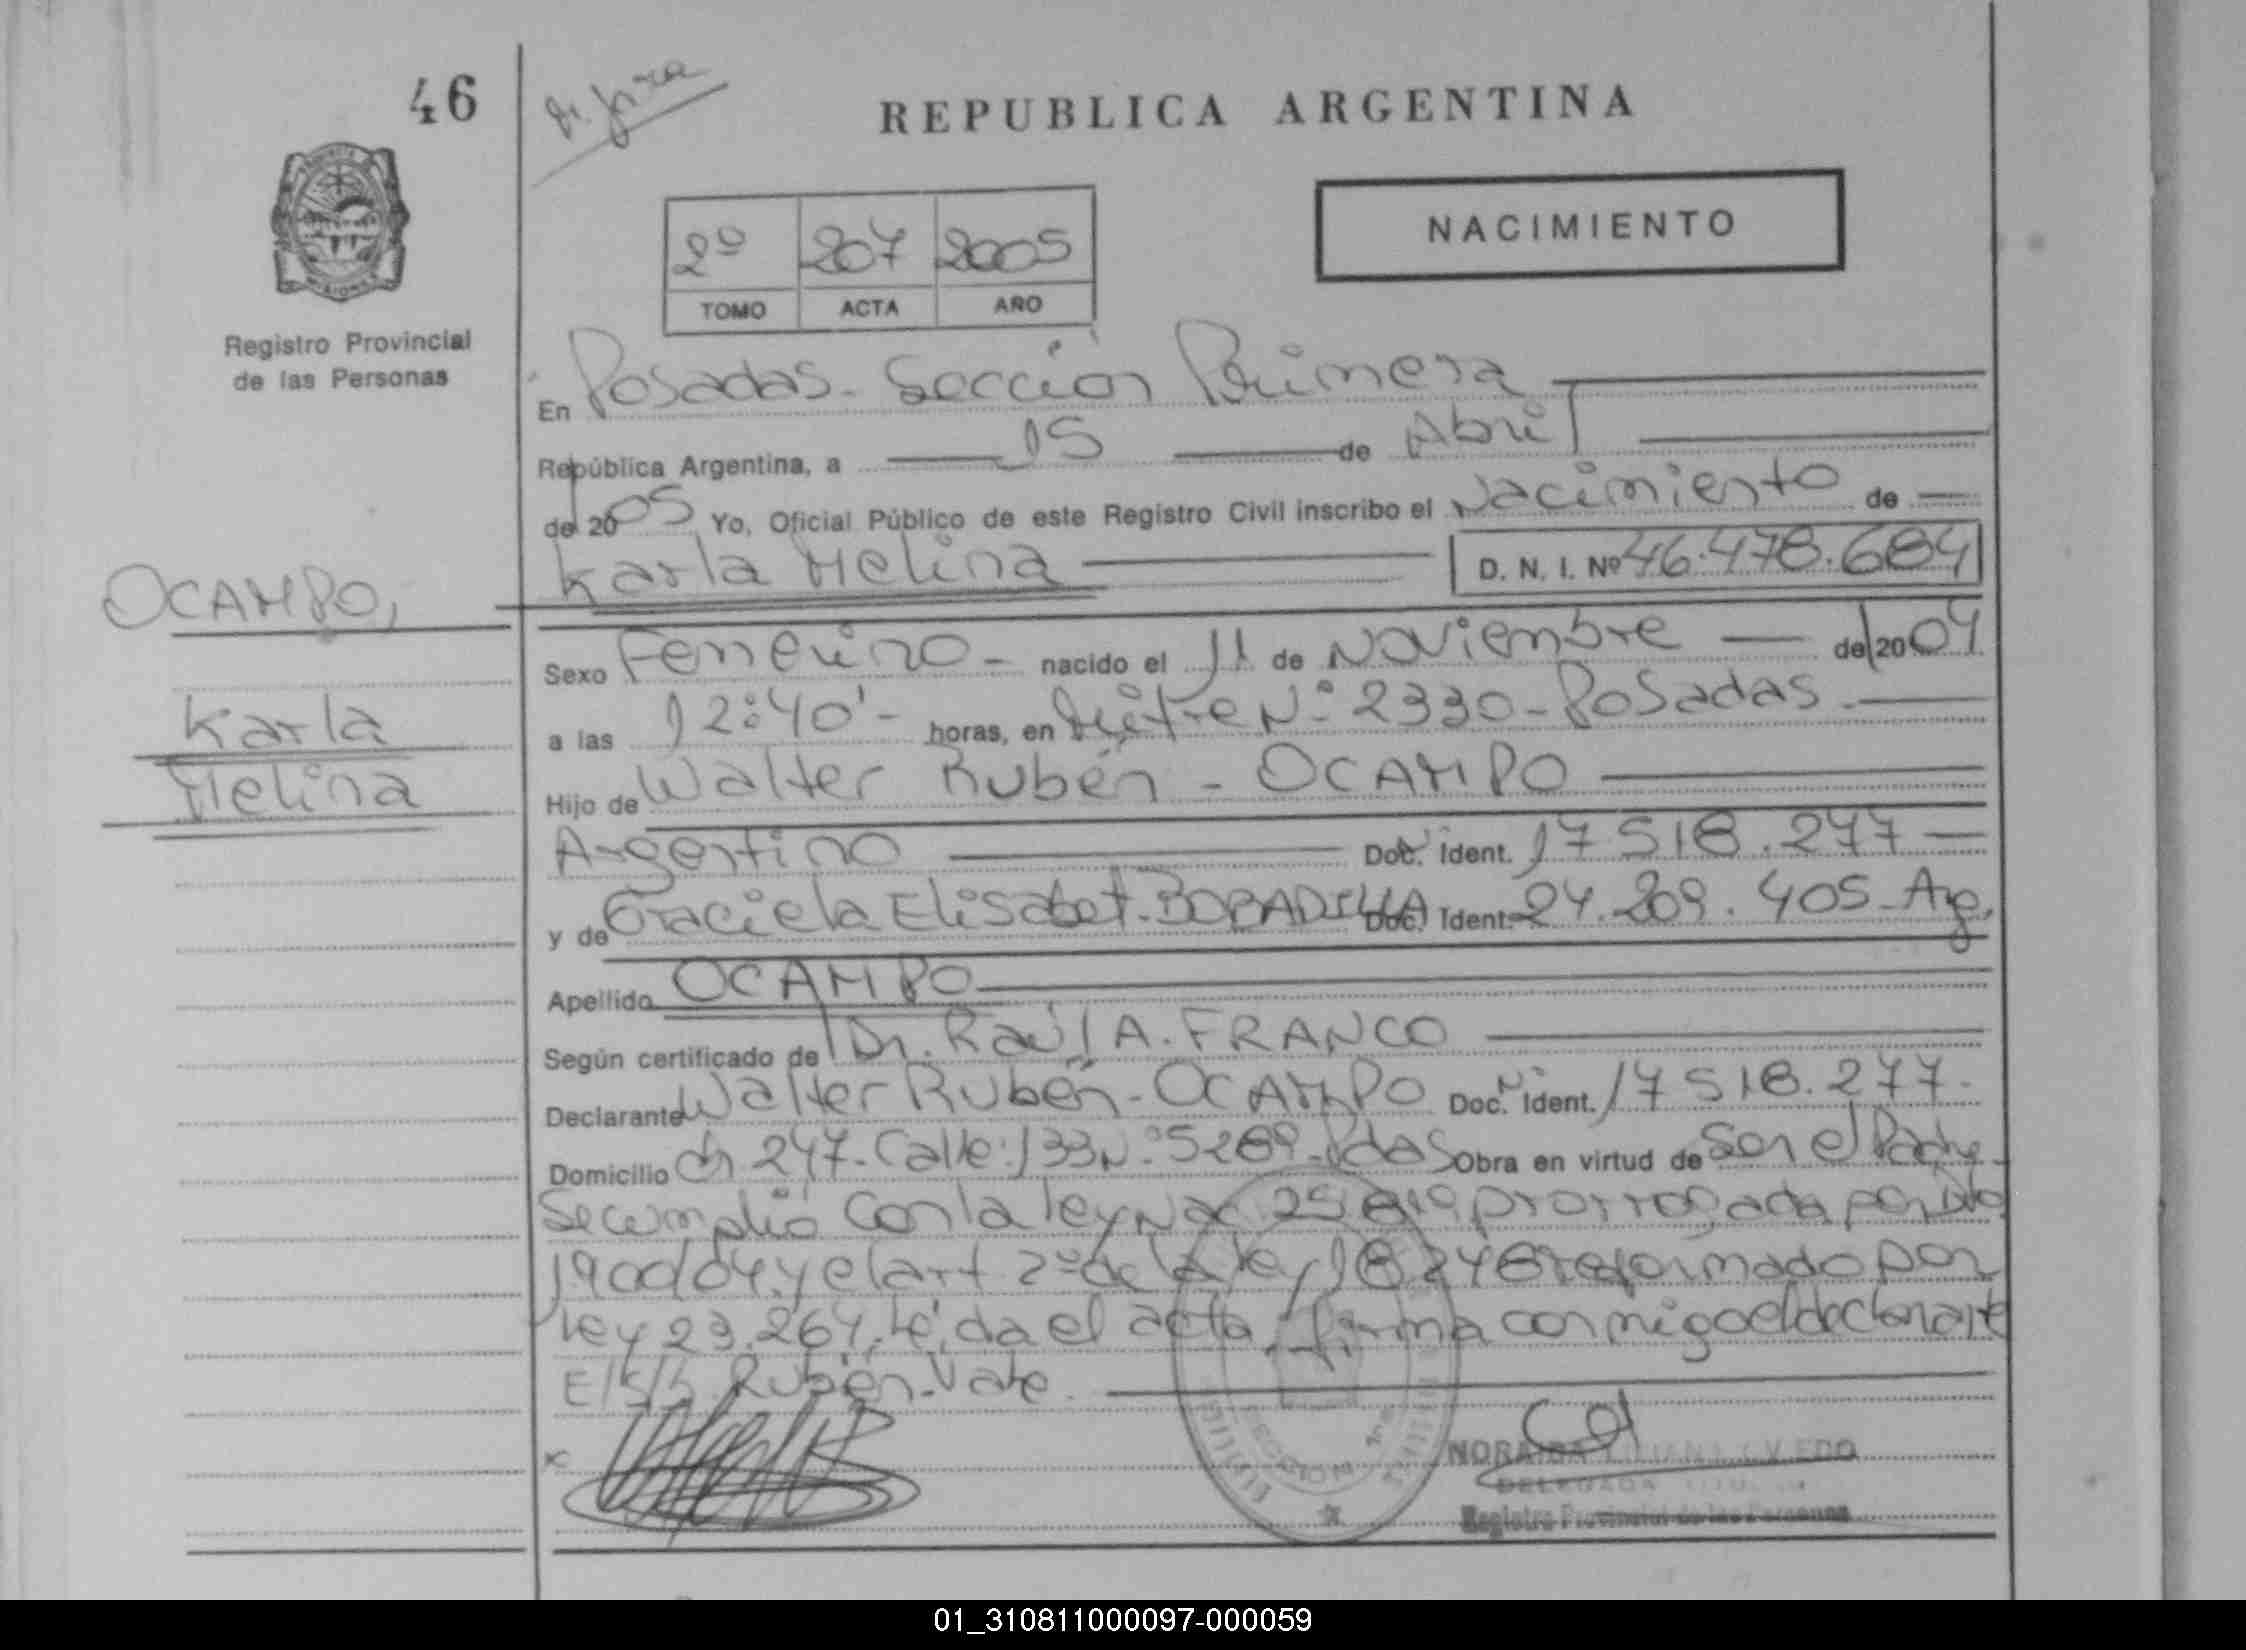 46
REPUBLICA ARGENTINA
NACIMIENTO
2º 207 2005
TOMO ACTA AÑO
Registro Provincial
de las Personas
En Posadas. Sección Primera
República Argentina, a 15 de Abril
de 2005 Yo, Oficial Público de este Registro Civil inscribo el Nacimiento de
Karla Melina D. N. I. Nº 46.478.684
OCAMPO,
Karla
Melina
Sexo Femenino - nacido el 11 de Noviembre de 2004
a las 12:40'- horas, en Mitre Nº 2330 - Posadas.
Hijo de Walter Rubén - OCAMPO
Argentino Doc. Ident. 17.518.277
y de Graciela Elisabet - BOBADILLA Doc. Ident. 24.209.405 - Arg.
Apellido OCAMPO
Según certificado de Dr. Raúl A. FRANCO
Declarante Walter Rubén - OCAMPO Doc. Ident. 17518.277.
Domicilio Ch 247 - Calle: 133 Nº 5289 - Pdas Obra en virtud de Ser el Padre
Se cumplió con la ley Nac 25819 prorrogada por Dto
1900/04, y el art 2º de la ley 18248 reformado por
ley 23.264, Leída el acta, firma conmigo el declarante
E/S/b. Rubén - Vale.
DELEGADA
Registro Provincial de las Personas
01_310811000097-000059